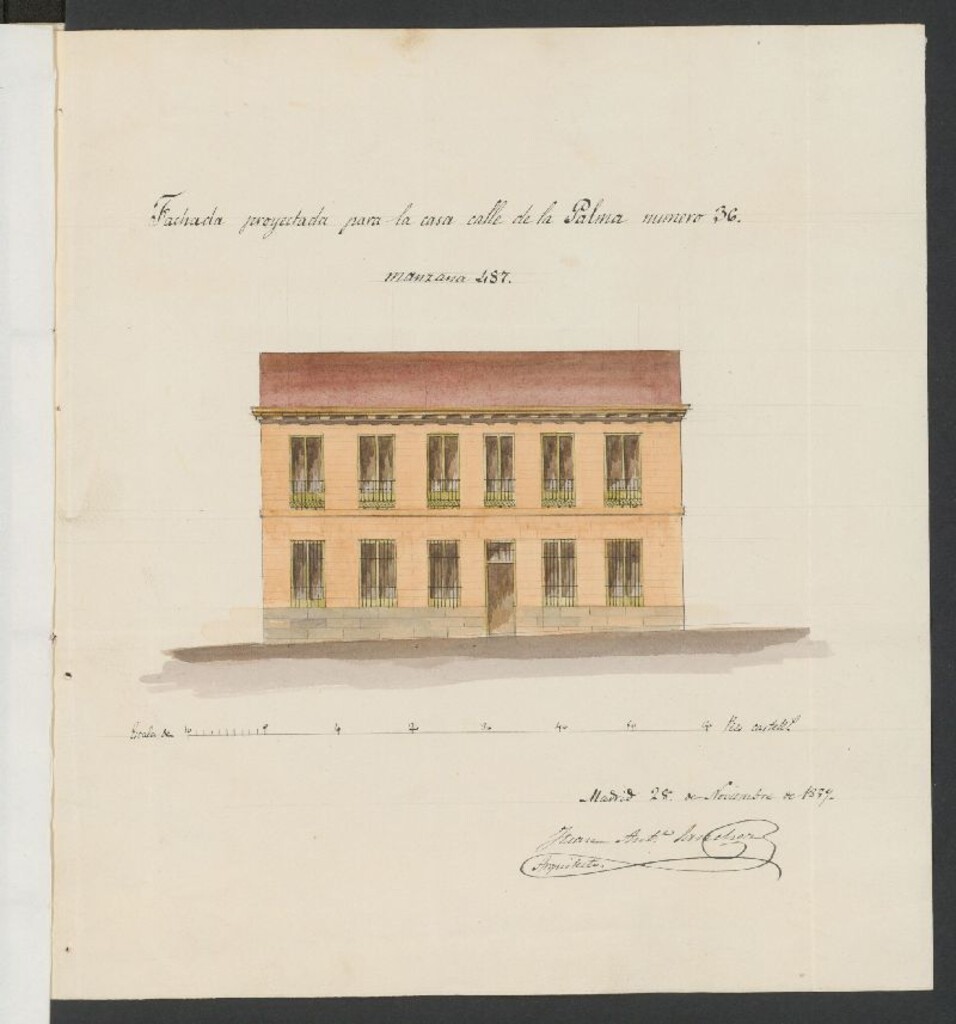 Fachada proyectada para la casa calle de la Palma numero 36.
manzana 487.
Escala de 10 0 10 20 30 40 50 60 Pies castell.s
Madrid 28. de Noviembre de 1857.
Juan Ant.o Sanchez
Arquitecto.